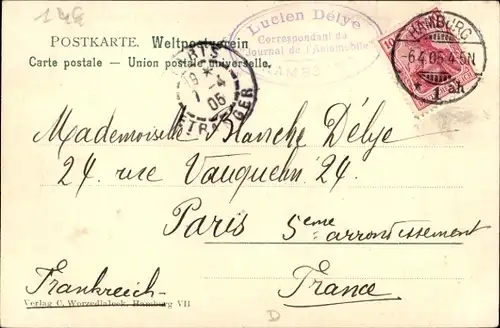 1 BG
Lucien Délye
Correspondant du
"Journal de l'Automobile"
HAMBG
POSTKARTE. Weltpostverein
Carte postale — Union postale universelle.
PARIS
19 * -4
05
ETRANGER
10
HAMBURG
-6.4.05.4-5N
* 1 ah
Mademoiselle Blanche Délye
24. rue Vauquelin 24.
Paris 5eme arrondissement
Frankreich France
Verlag C. Worzedialeck, Hamburg VII
D